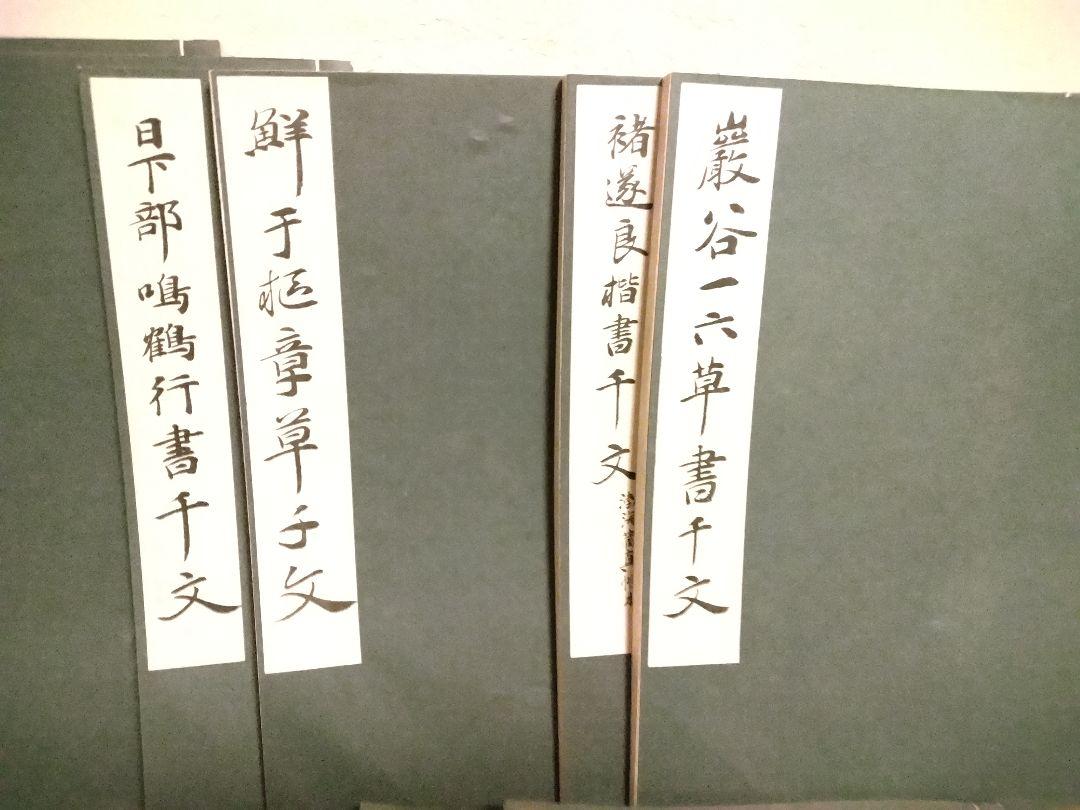 巖谷一六草書千文
褚遂良楷書千文
鮮于枢章草千文
日下部鳴鶴行書千文